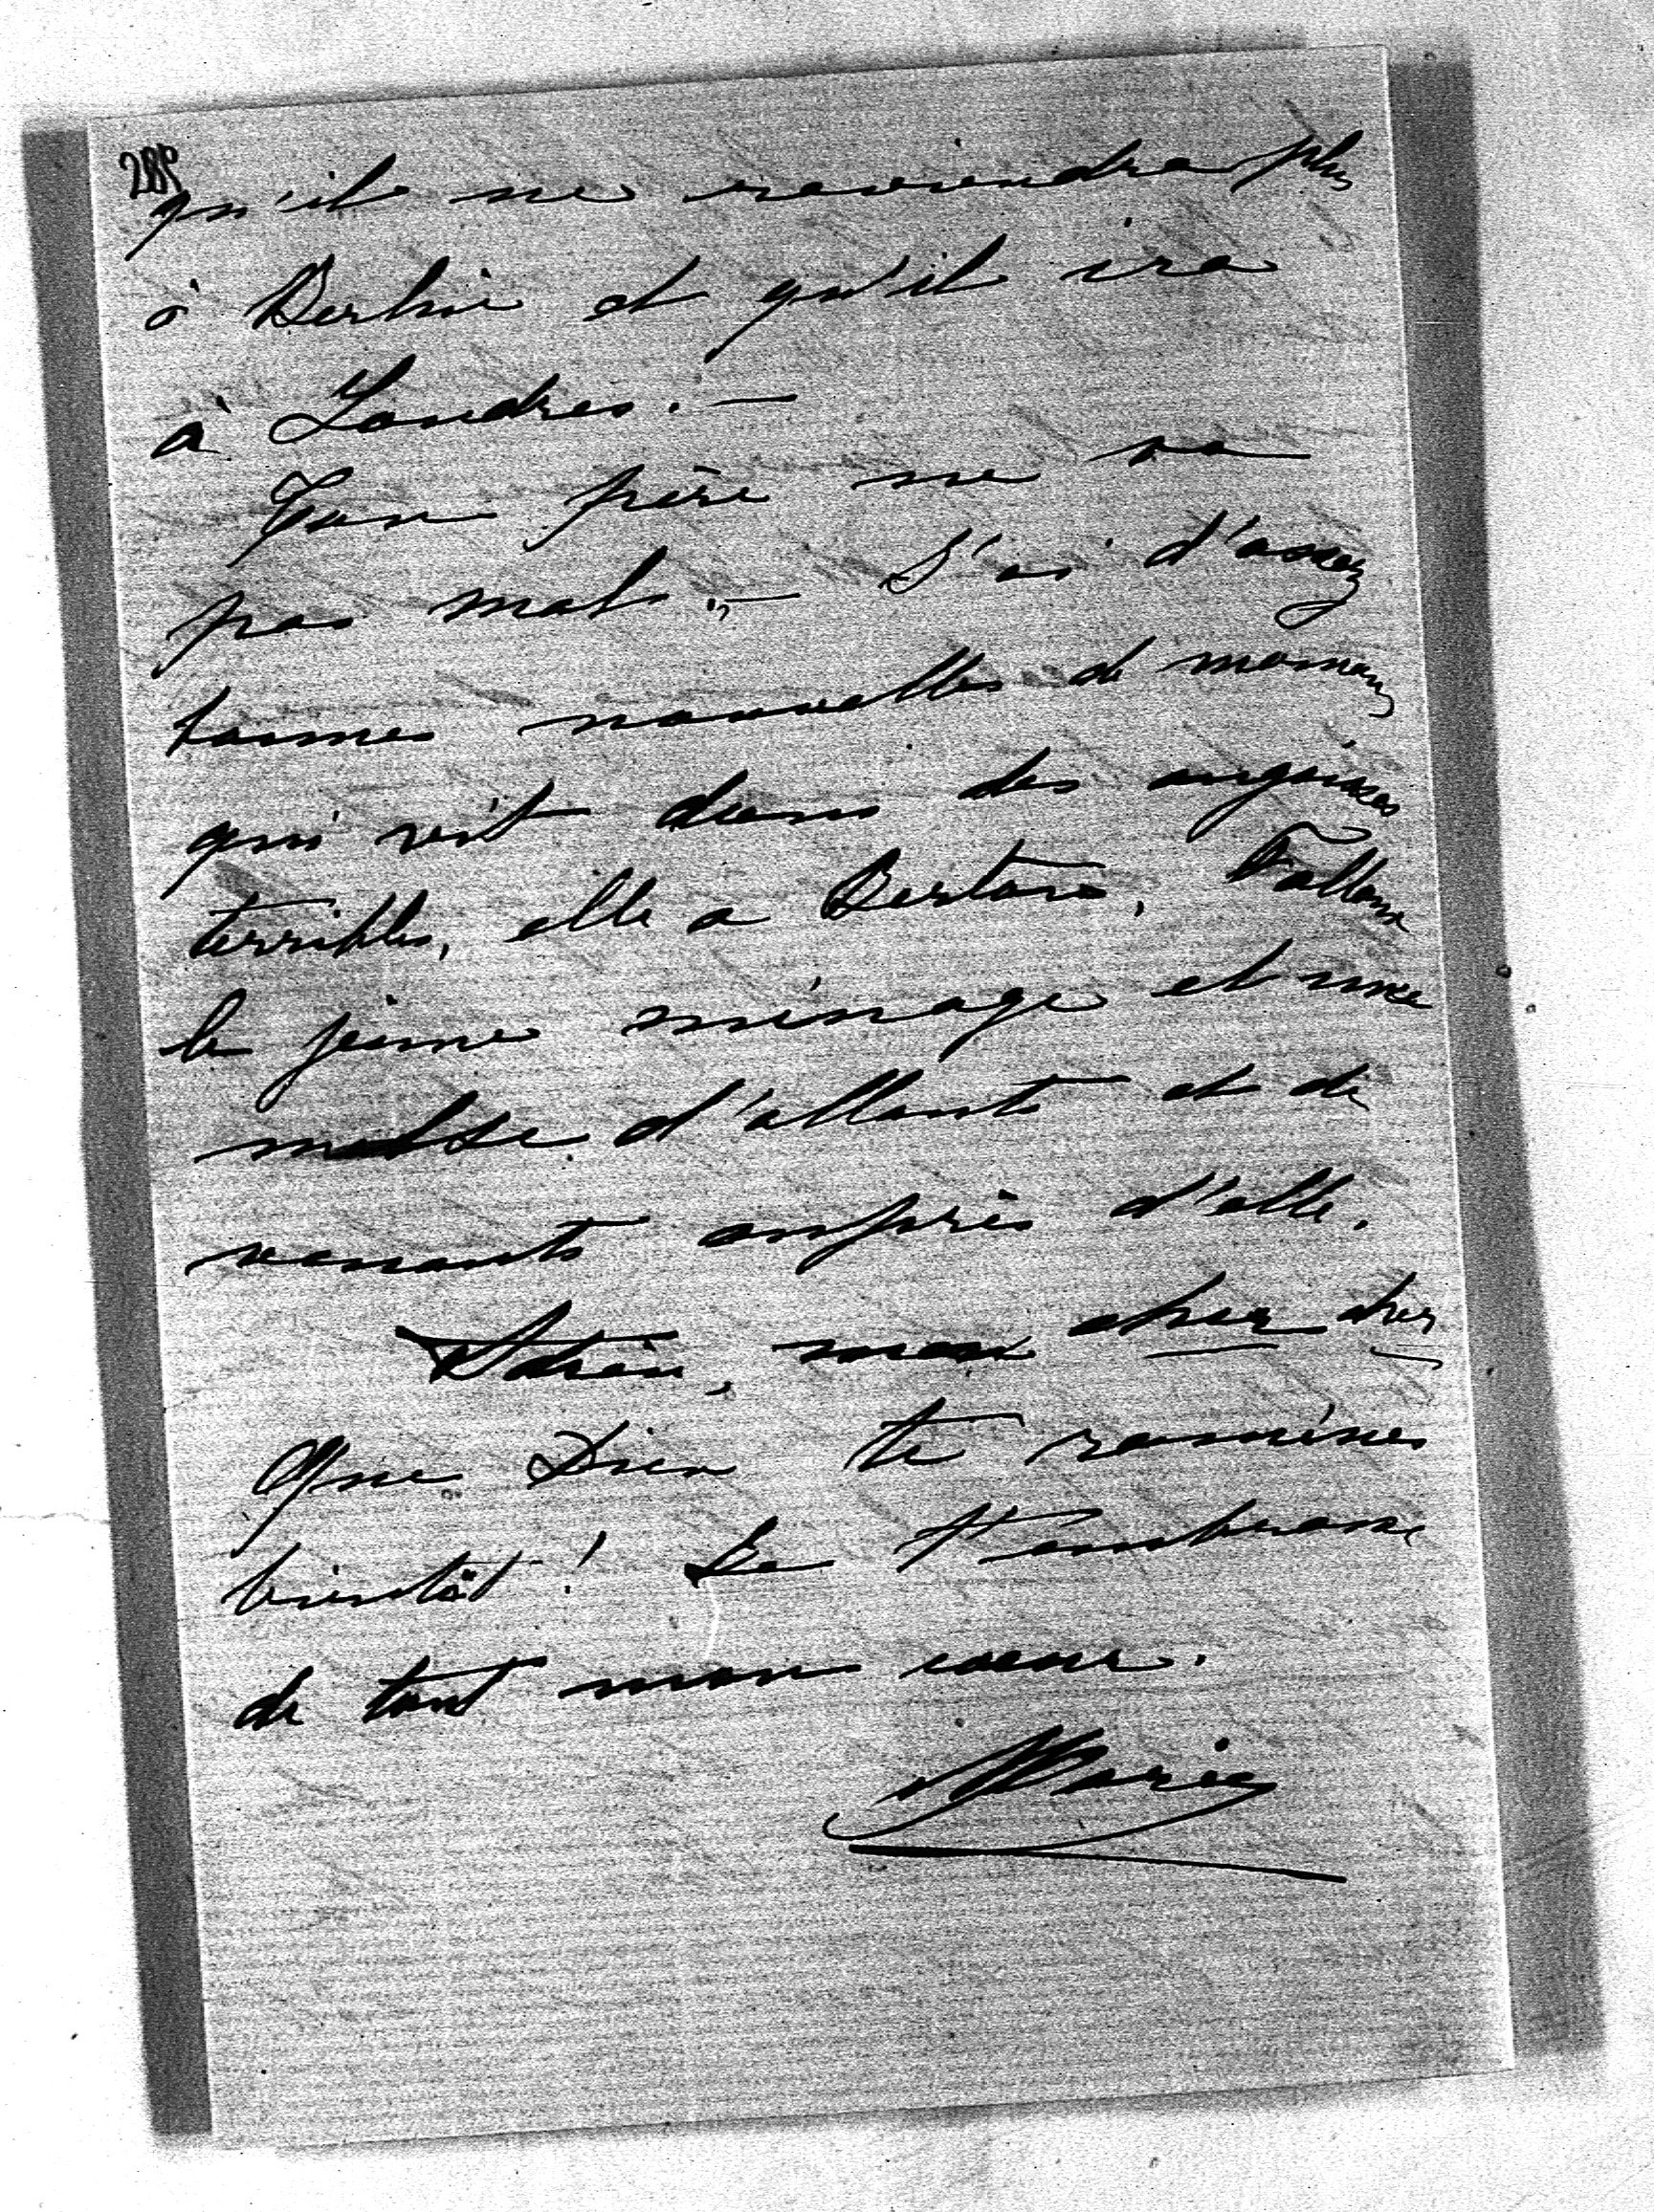 qu'il ne reviendra plus
à Berlin et qu'il ira
à Londres. —
Ton père ne va
pas mal. — J'ai d'assez
bonnes nouvelles de maman
qui vit dans des angoisses
terribles, elle a
le jeune ménage et une
masse d'allants et de
venants auprès d'elle.
Adieu, mon cher cher
Que Dieu te ramène
bientôt ! Je t'embrasse
de tout mon cœur.
Marie